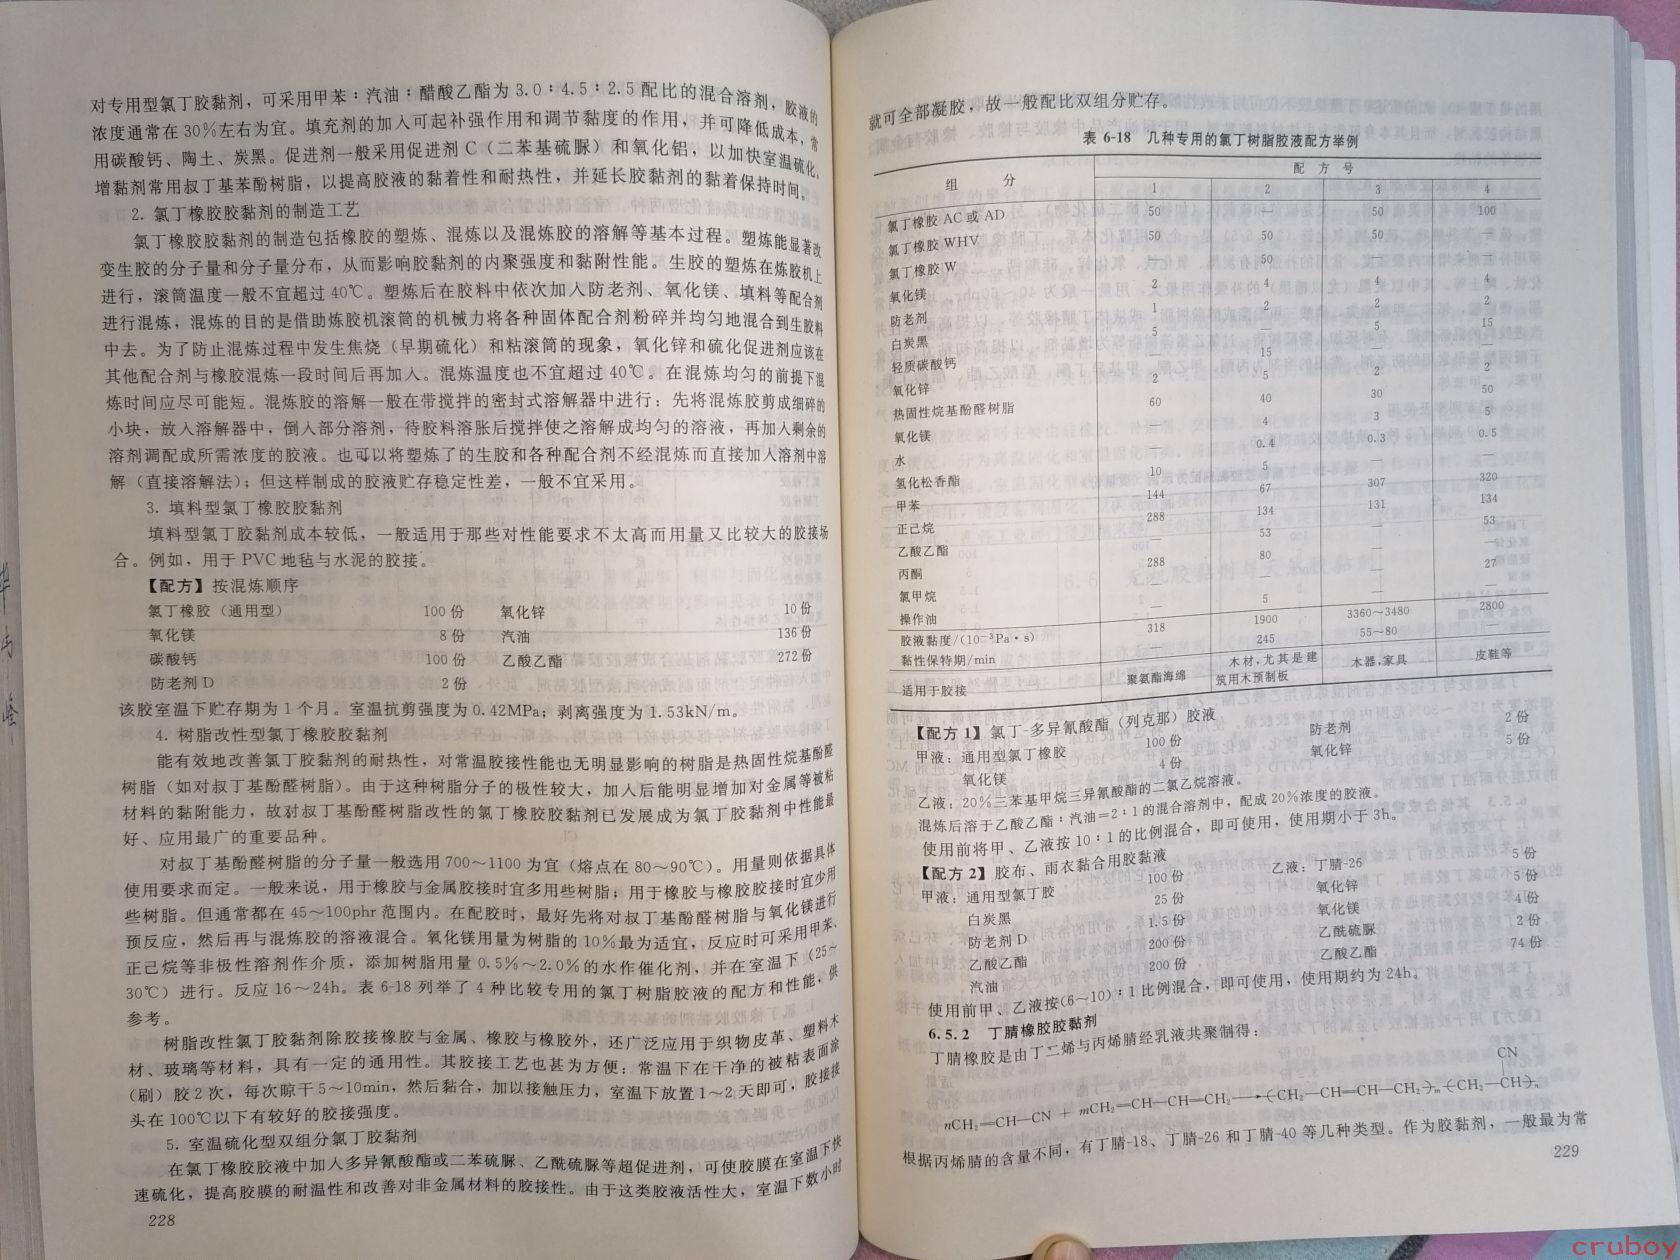 对专用型氯丁胶黏剂，可采用甲苯∶汽油∶醋酸乙酯为 3.0∶4.5∶2.5 配比的混合溶剂，胶液的
浓度通常在 30%左右为宜。填充剂的加入可起补强作用和调节黏度的作用，并可降低成本，常
用碳酸钙、陶土、炭黑。促进剂一般采用促进剂 C（二苯基硫脲）和氧化铝，以加快室温硫化，
增黏剂常用叔丁基苯酚树脂，以提高胶液的黏着性和耐热性，并延长胶黏剂的黏着保持时间。
2. 氯丁橡胶胶黏剂的制造工艺
氯丁橡胶胶黏剂的制造包括橡胶的塑炼、混炼以及混炼胶的溶解等基本过程。塑炼能显著改
变生胶的分子量和分子量分布，从而影响胶黏剂的内聚强度和黏附性能。生胶的塑炼在炼胶机上
进行，滚筒温度一般不宜超过 40℃。塑炼后在胶料中依次加入防老剂、氧化镁、填料等配合剂
进行混炼，混炼的目的是借助炼胶机滚筒的机械力将各种固体配合剂粉碎并均匀地混合到生胶料
中去。为了防止混炼过程中发生焦烧（早期硫化）和粘滚筒的现象，氧化锌和硫化促进剂应该在
其他配合剂与橡胶混炼一段时间后再加入。混炼温度也不宜超过 40℃。在混炼均匀的前提下混
炼时间应尽可能短。混炼胶的溶解一般在带搅拌的密封式溶解器中进行：先将混炼胶剪成细碎的
小块，放入溶解器中，倒入部分溶剂，待胶料溶胀后搅拌使之溶解成均匀的溶液，再加入剩余的
溶剂调配成所需浓度的胶液。也可以将塑炼了的生胶和各种配合剂不经混炼而直接加入溶剂中溶
解（直接溶解法）；但这样制成的胶液贮存稳定性差，一般不宜采用。
3. 填料型氯丁橡胶胶黏剂
填料型氯丁胶黏剂成本较低，一般适用于那些对性能要求不太高而用量又比较大的胶接场
合。例如，用于 PVC 地毡与水泥的胶接。
【配方】按混炼顺序
氯丁橡胶（通用型） 100 份 氧化锌 10 份
氧化镁 8 份 汽油 136 份
碳酸钙 100 份 乙酸乙酯 272 份
防老剂 D 2 份
该胶室温下贮存期为 1 个月。室温抗剪强度为 0.42MPa；剥离强度为 1.53kN/m。
4. 树脂改性型氯丁橡胶胶黏剂
能有效地改善氯丁胶黏剂的耐热性，对常温胶接性能也无明显影响的树脂是热固性烷基酚醛
树脂（如对叔丁基酚醛树脂）。由于这种树脂分子的极性较大，加入后能明显增加对金属等被粘
材料的黏附能力，故对叔丁基酚醛树脂改性的氯丁橡胶胶黏剂已发展成为氯丁胶黏剂中性能最
好、应用最广的重要品种。
对叔丁基酚醛树脂的分子量一般选用 700～1100 为宜（熔点在 80～90℃）。用量则依据具体
使用要求而定。一般来说，用于橡胶与金属胶接时宜多用些树脂；用于橡胶与橡胶胶接时宜少用
些树脂。但通常都在 45～100phr 范围内。在配胶时，最好先将对叔丁基酚醛树脂与氧化镁进行
预反应，然后再与混炼胶的溶液混合。氧化镁用量为树脂的 10%最为适宜，反应时可采用甲苯、
正己烷等非极性溶剂作介质，添加树脂用量 0.5%～2.0%的水作催化剂，并在室温下（25～
30℃）进行。反应 16～24h。表 6-18 列举了 4 种比较专用的氯丁树脂胶液的配方和性能，供
参考。
树脂改性氯丁胶黏剂除胶接橡胶与金属、橡胶与橡胶外，还广泛应用于织物皮革、塑料木
材、玻璃等材料，具有一定的通用性。其胶接工艺也甚为方便：常温下在干净的被粘表面涂
（刷）胶 2 次，每次晾干 5～10min，然后黏合，加以接触压力，室温下放置 1～2 天即可，胶接接
头在 100℃以下有较好的胶接强度。
5. 室温硫化型双组分氯丁胶黏剂
在氯丁橡胶胶液中加入多异氰酸酯或二苯硫脲、乙酰硫脲等超促进剂，可使胶膜在室温下快
速硫化，提高胶膜的耐温性和改善对非金属材料的胶接性。由于这类胶液活性大，室温下数小时
228
就可全部凝胶，故一般配比双组分贮存。
表 6-18 几种专用的氯丁树脂胶液配方举例
组 分 配 方 号
1 2 3 4
氯丁橡胶 AC 或 AD 50 — 50 100
氯丁橡胶 WHV 50 50 50 —
氯丁橡胶 W — 50 — —
氧化镁 2 4 4 4
防老剂 1 2 2 2
白炭黑 5 — 5 15
轻质碳酸钙 — 15 — —
氧化锌 2 5 2 2
热固性烷基酚醛树脂 60 40 30 50
氧化镁 — 4 3 5
水 — 0.4 0.3 0.5
氢化松香酯 10 5 — —
甲苯 144 67 307 320
正己烷 288 134 131 134
乙酸乙酯 — 53 — 53
丙酮 288 80 — —
氯甲烷 — — — 27
操作油 — 5 — —
胶液黏度/(10⁻³Pa·s) 318 1900 3360～3480 2800
黏性保特期/min — 245 55～80 —
适用于胶接 聚氨酯海绵 木材，尤其是建筑用木预制板 木器，家具 皮鞋等
【配方 1】氯丁-多异氰酸酯（列克那）胶液
甲液：通用型氯丁橡胶 100 份 防老剂 2 份
氧化镁 4 份 氧化锌 5 份
乙液：20%三苯基甲烷三异氰酸酯的二氯乙烷溶液。
混炼后溶于乙酸乙酯∶汽油＝2∶1 的混合溶剂中，配成 20%浓度的胶液。
使用前将甲、乙液按 10∶1 的比例混合，即可使用，使用期小于 3h。
【配方 2】胶布、雨衣黏合用胶黏液
甲液：通用型氯丁胶 100 份 乙液：丁腈-26 5 份
白炭黑 25 份 氧化锌 5 份
防老剂 D 1.5 份 氧化镁 4 份
乙酸乙酯 200 份 乙酰硫脲 2 份
汽油 200 份 乙酸乙酯 74 份
使用前甲、乙液按(6～10)∶1 比例混合，即可使用，使用期约为 24h。
6.5.2 丁腈橡胶胶黏剂
丁腈橡胶是由丁二烯与丙烯腈经乳液共聚制得：
CN
nCH₂═CH—CN + mCH₂═CH—CH═CH₂ ⟶ ⫗CH₂—CH═CH—CH₂⫘ₘ⫗CH₂—CH⫘ₙ
根据丙烯腈的含量不同，有丁腈-18、丁腈-26 和丁腈-40 等几种类型。作为胶黏剂，一般最为常
229
cruboy